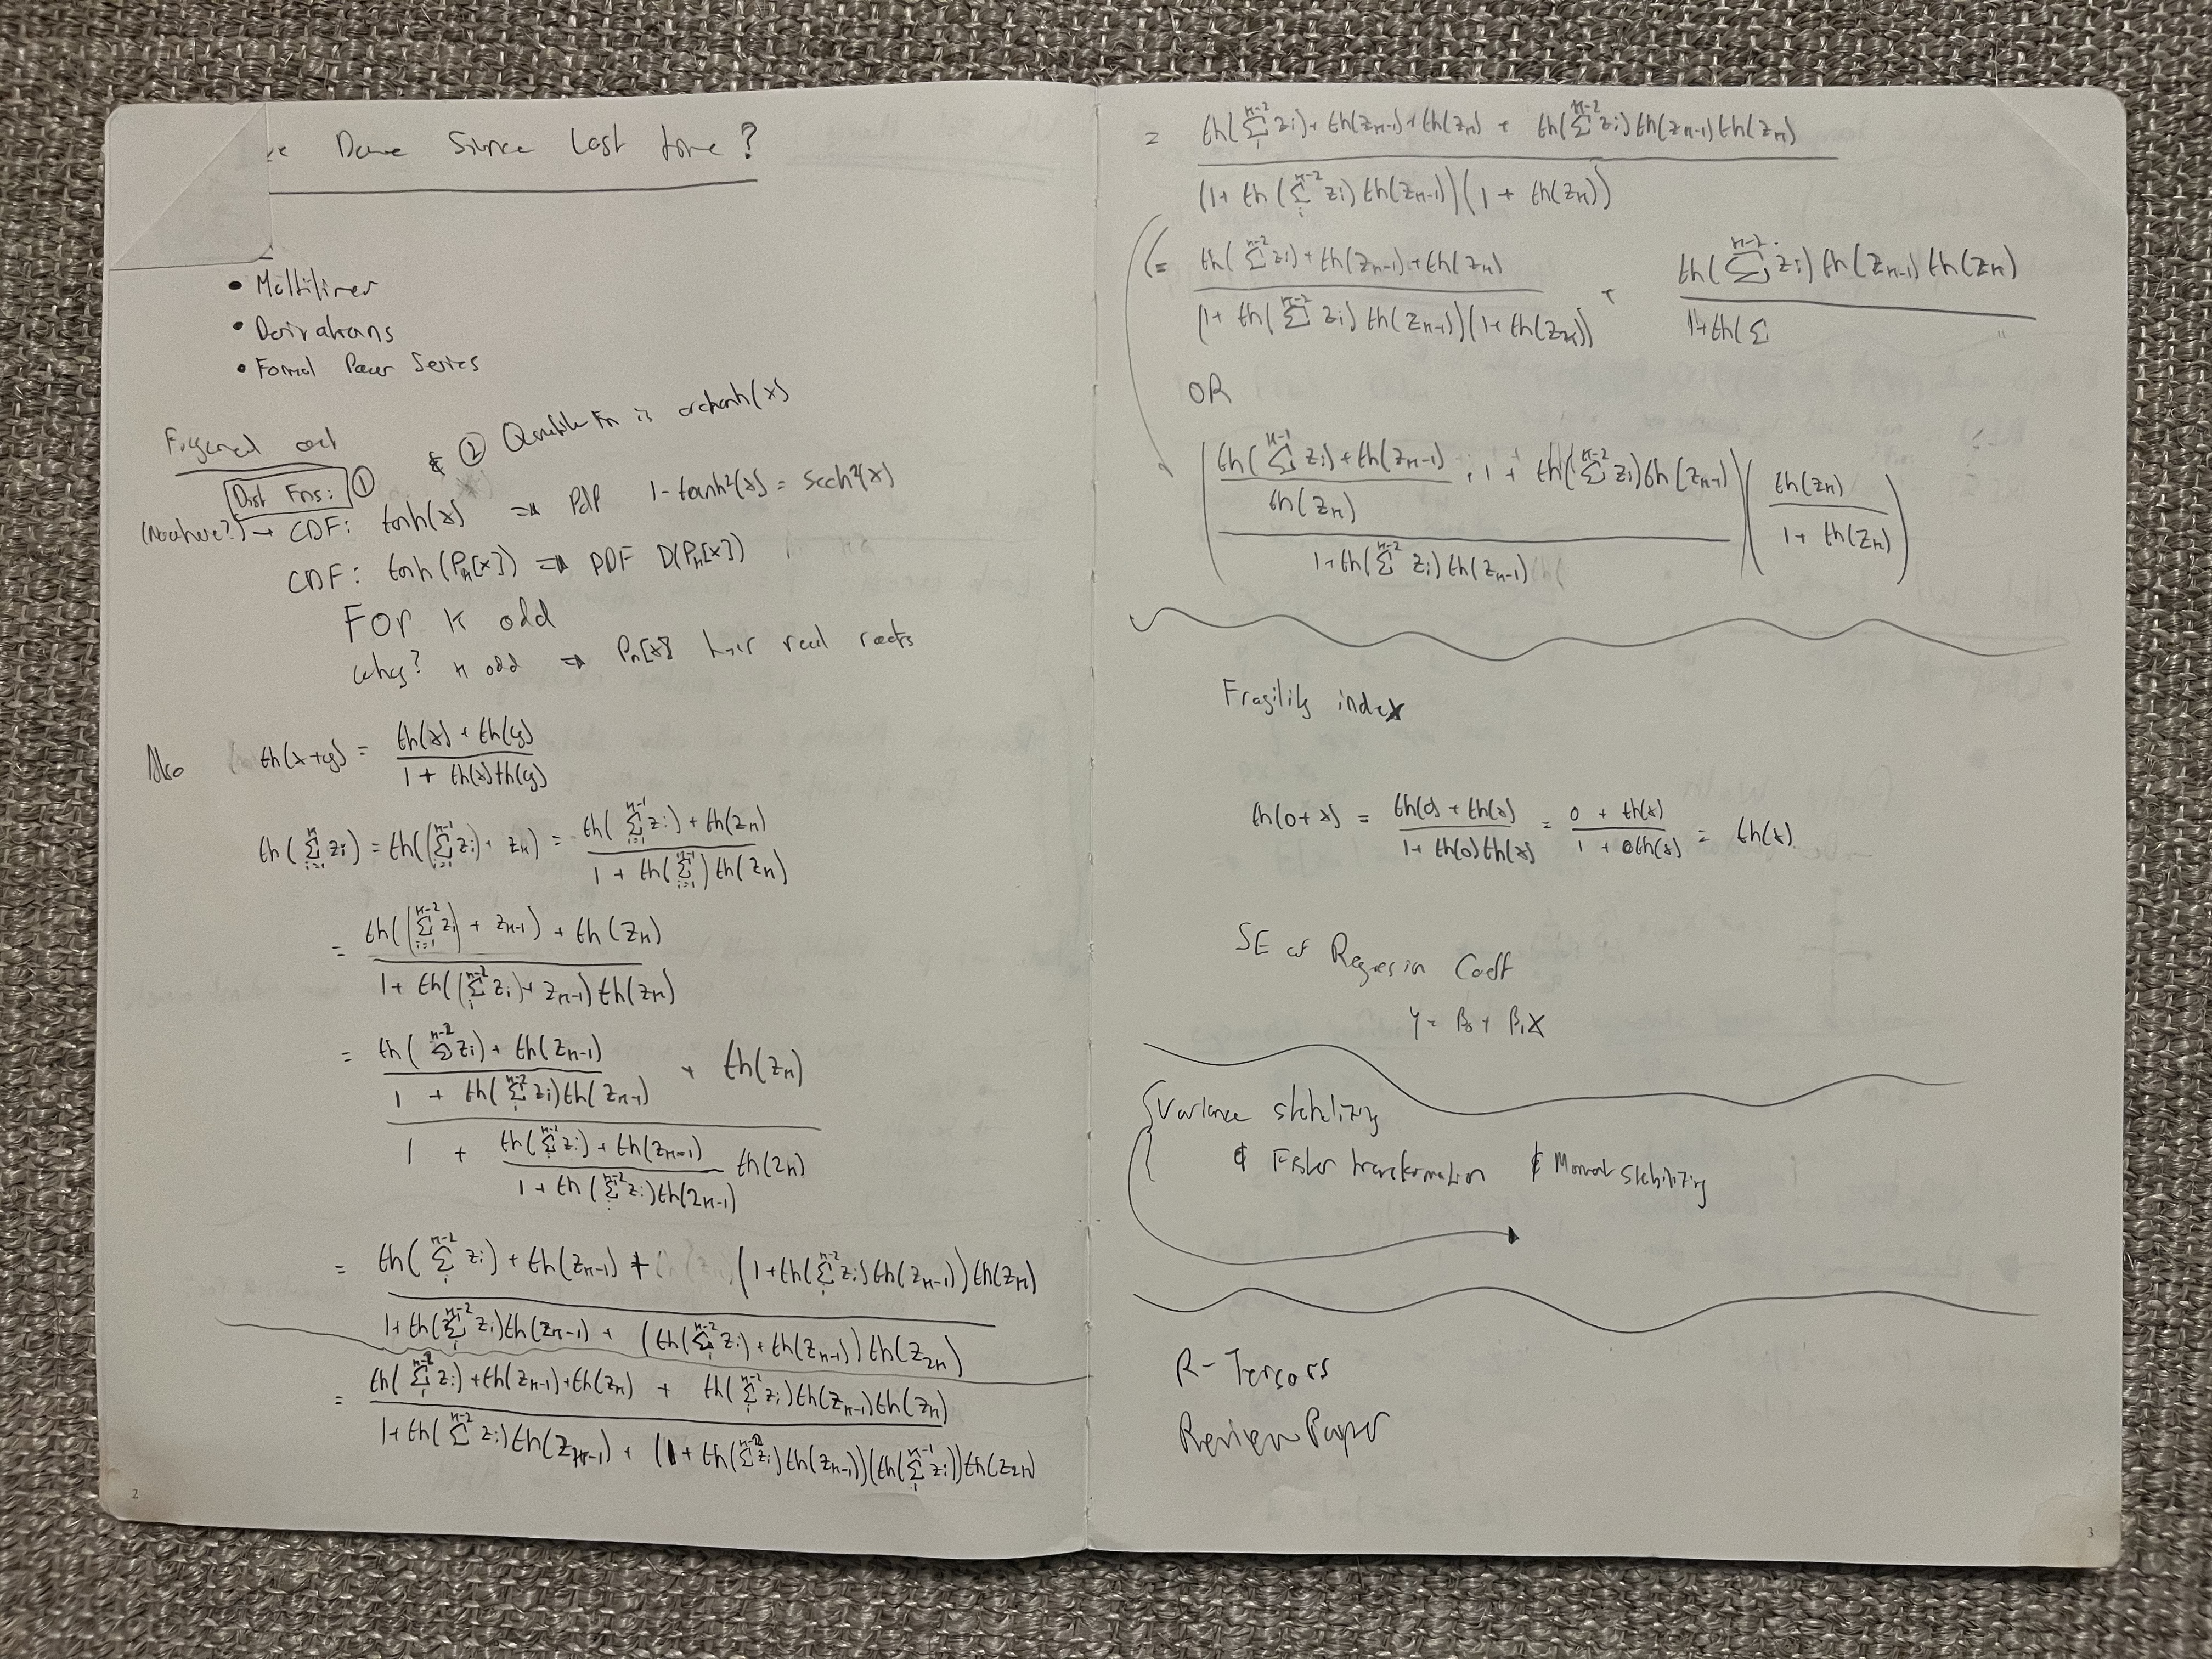 Done Since Last time?
• Multiliner
• Derivations
• Formal Power Series
Figured out
Dist Fns: ① & ② Quantile Fn is arctanh(x)
(Noahwe?) → CDF: tanh(x) ⇒ PDF 1-tanh²(x) = sech²(x)
CDF: tanh(Pₙ[x]) ⇒ PDF D(Pₙ[x])
For k odd
why? n odd ⇒ Pₙ[x] has real roots
Also th(x+y) = (th(x) + th(y)) / (1 + th(x)th(y))
th(Σⁿᵢ₌₁ zᵢ) = th((Σⁿ⁻¹ᵢ₌₁ zᵢ) + zₙ) = (th(Σⁿ⁻¹ᵢ₌₁ zᵢ) + th(zₙ)) / (1 + th(Σⁿ⁻¹ᵢ₌₁) th(zₙ))
= (th((Σⁿ⁻²ᵢ₌₁ zᵢ) + zₙ₋₁) + th(zₙ)) / (1 + th((Σⁿ⁻² zᵢ) + zₙ₋₁) th(zₙ))
= ((th(Σⁿ⁻² zᵢ) + th(zₙ₋₁)) / (1 + th(Σⁿ⁻² zᵢ)th(zₙ₋₁)) + th(zₙ)) /
(1 + (th(Σⁿ⁻² zᵢ) + th(zₙ₋₁)) / (1 + th(Σⁿ⁻² zᵢ)th(zₙ₋₁)) th(zₙ))
= (th(Σⁿ⁻² zᵢ) + th(zₙ₋₁) + (1 + th(Σⁿ⁻² zᵢ)th(zₙ₋₁))th(zₙ)) /
(1 + th(Σⁿ⁻² zᵢ)th(zₙ₋₁) + (th(Σⁿ⁻² zᵢ) + th(zₙ₋₁))th(zₙ))
= (th(Σⁿ⁻² zᵢ) + th(zₙ₋₁) + th(zₙ) + th(Σⁿ⁻² zᵢ)th(zₙ₋₁)th(zₙ)) /
(1 + th(Σⁿ⁻² zᵢ)th(zₙ₋₁) + (1 + th(Σⁿ⁻² zᵢ)th(zₙ₋₁))(th(Σⁿ⁻¹ zᵢ))th(zₙ))
2
= (th(Σⁿ⁻² zᵢ) + th(zₙ₋₁) + th(zₙ) + th(Σⁿ⁻² zᵢ)th(zₙ₋₁)th(zₙ)) /
(1 + th(Σⁿ⁻² zᵢ)th(zₙ₋₁))(1 + th(zₙ))
(= (th(Σⁿ⁻² zᵢ) + th(zₙ₋₁) + th(zₙ)) / ((1 + th(Σⁿ⁻² zᵢ)th(zₙ₋₁))(1 + th(zₙ))) + th(Σⁿ⁻² zᵢ)th(zₙ₋₁)th(zₙ) /
1 + th(Σ
OR
((th(Σⁿ⁻¹ zᵢ) + th(zₙ₋₁)) / th(zₙ) + 1 + th(Σⁿ⁻² zᵢ)th(zₙ₋₁)) / (1 + th(Σⁿ⁻² zᵢ)th(zₙ₋₁)) (th(zₙ) / (1 + th(zₙ)))
Fragility index
th(0+x) = (th(0) + th(x)) / (1 + th(0)th(x)) = (0 + th(x)) / (1 + 0th(x)) = th(x)
SE of Regression Coeff
y = β₀ + β₁x
Variance stabilizing
& Fisher transformation & Moment stabilizing
R-Tensors
Review Paper
3